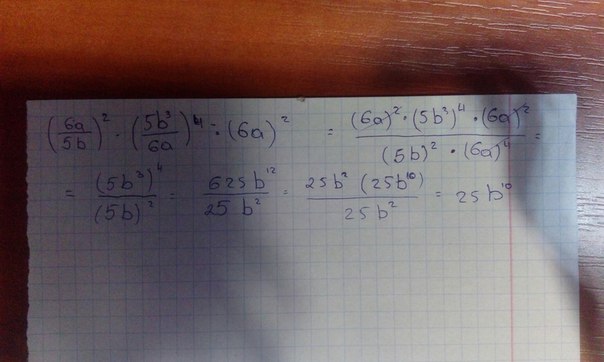 (6a/5b)² · (5b³/6a)⁴ : (6a)² = (6a)² · (5b³)⁴ · (6a)² / (5b)² · (6a)⁴ =
= (5b³)⁴ / (5b)² = 625b¹² / 25b² = 25b² (25b¹⁰) / 25b² = 25b¹⁰